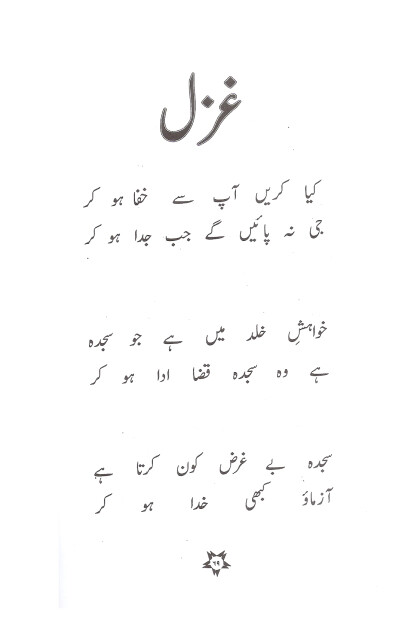 غزل
کیا کریں آپ سے خفا ہو کر
جی نہ پائیں گے جب جدا ہو کر
خواہشِ خلد میں ہے جو سجدہ
ہے وہ سجدہ قضا ادا ہو کر
سجدہ بے غرض کون کرتا ہے
آزماؤ کبھی خدا ہو کر
٦٩